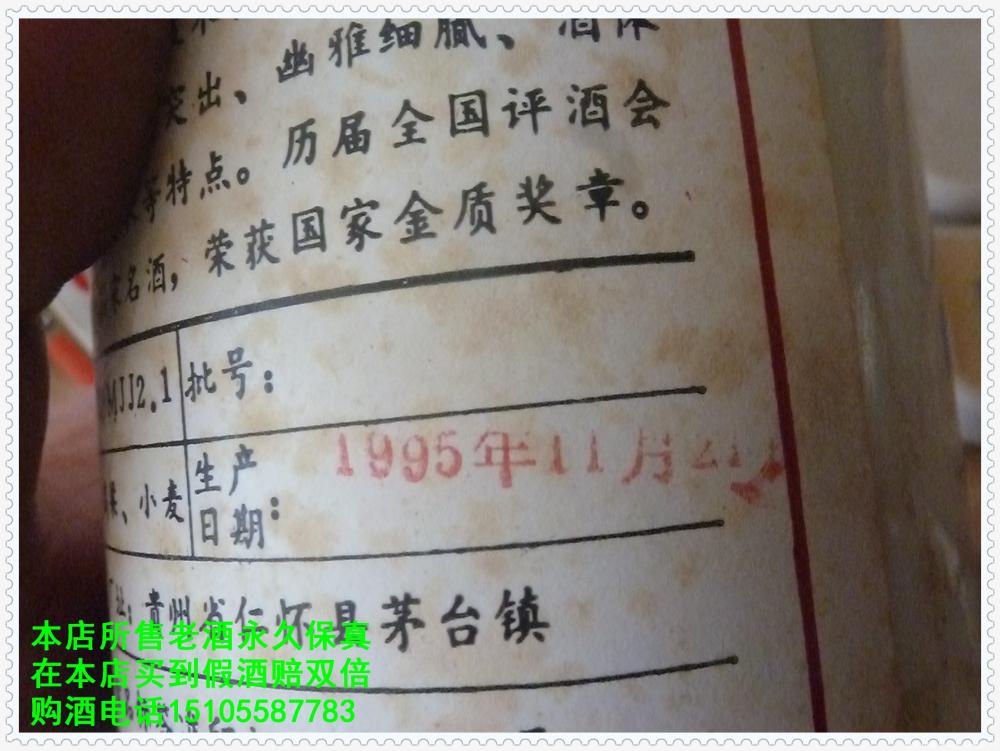 突出、幽雅细腻、酒体
等特点。历届全国评酒会
家名酒，荣获国家金质奖章。
MJJ2.1 批号：
、小麦 生产日期： 1995年11月
址：贵州省仁怀县茅台镇
本店所售老酒永久保真
在本店买到假酒赔双倍
购酒电话15105587783